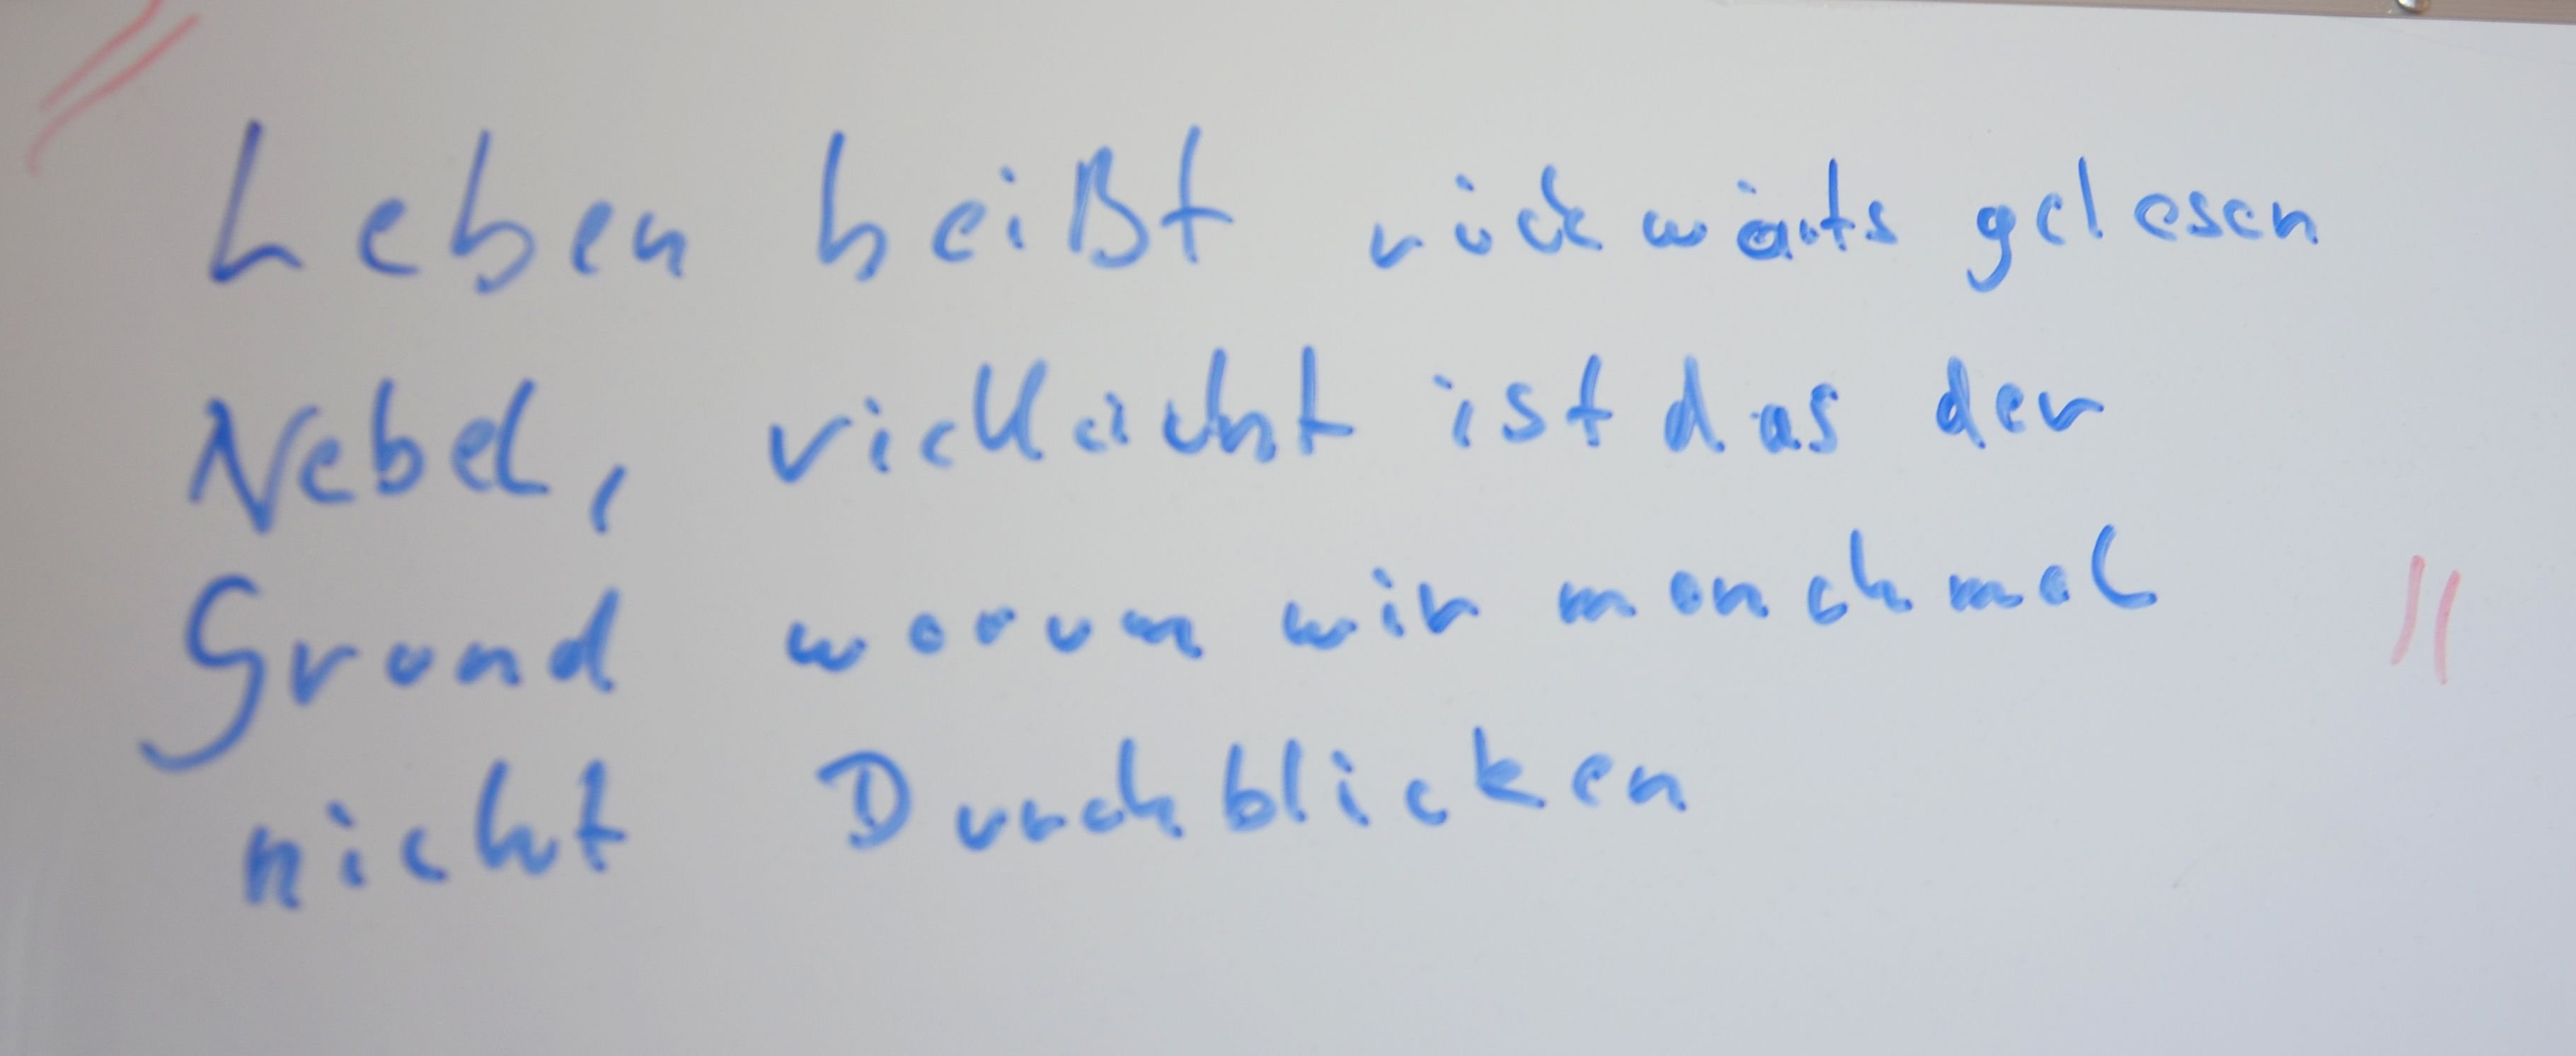 Leben heißt rückwärts gelesen
Nebel, vielleicht ist das der
Grund warum wir manchmal
nicht Durchblicken